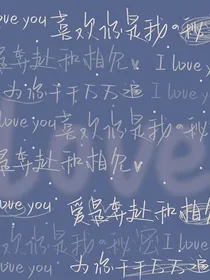 love you 喜欢你是我的秘
爱是奔赴和相见 I love you
为你千千万万遍 I love you
love you 喜欢你是我的秘密
爱是奔赴和相见
Love
love you 爱是奔赴和相见
喜欢你是我的秘密 I love
为你千千万万遍